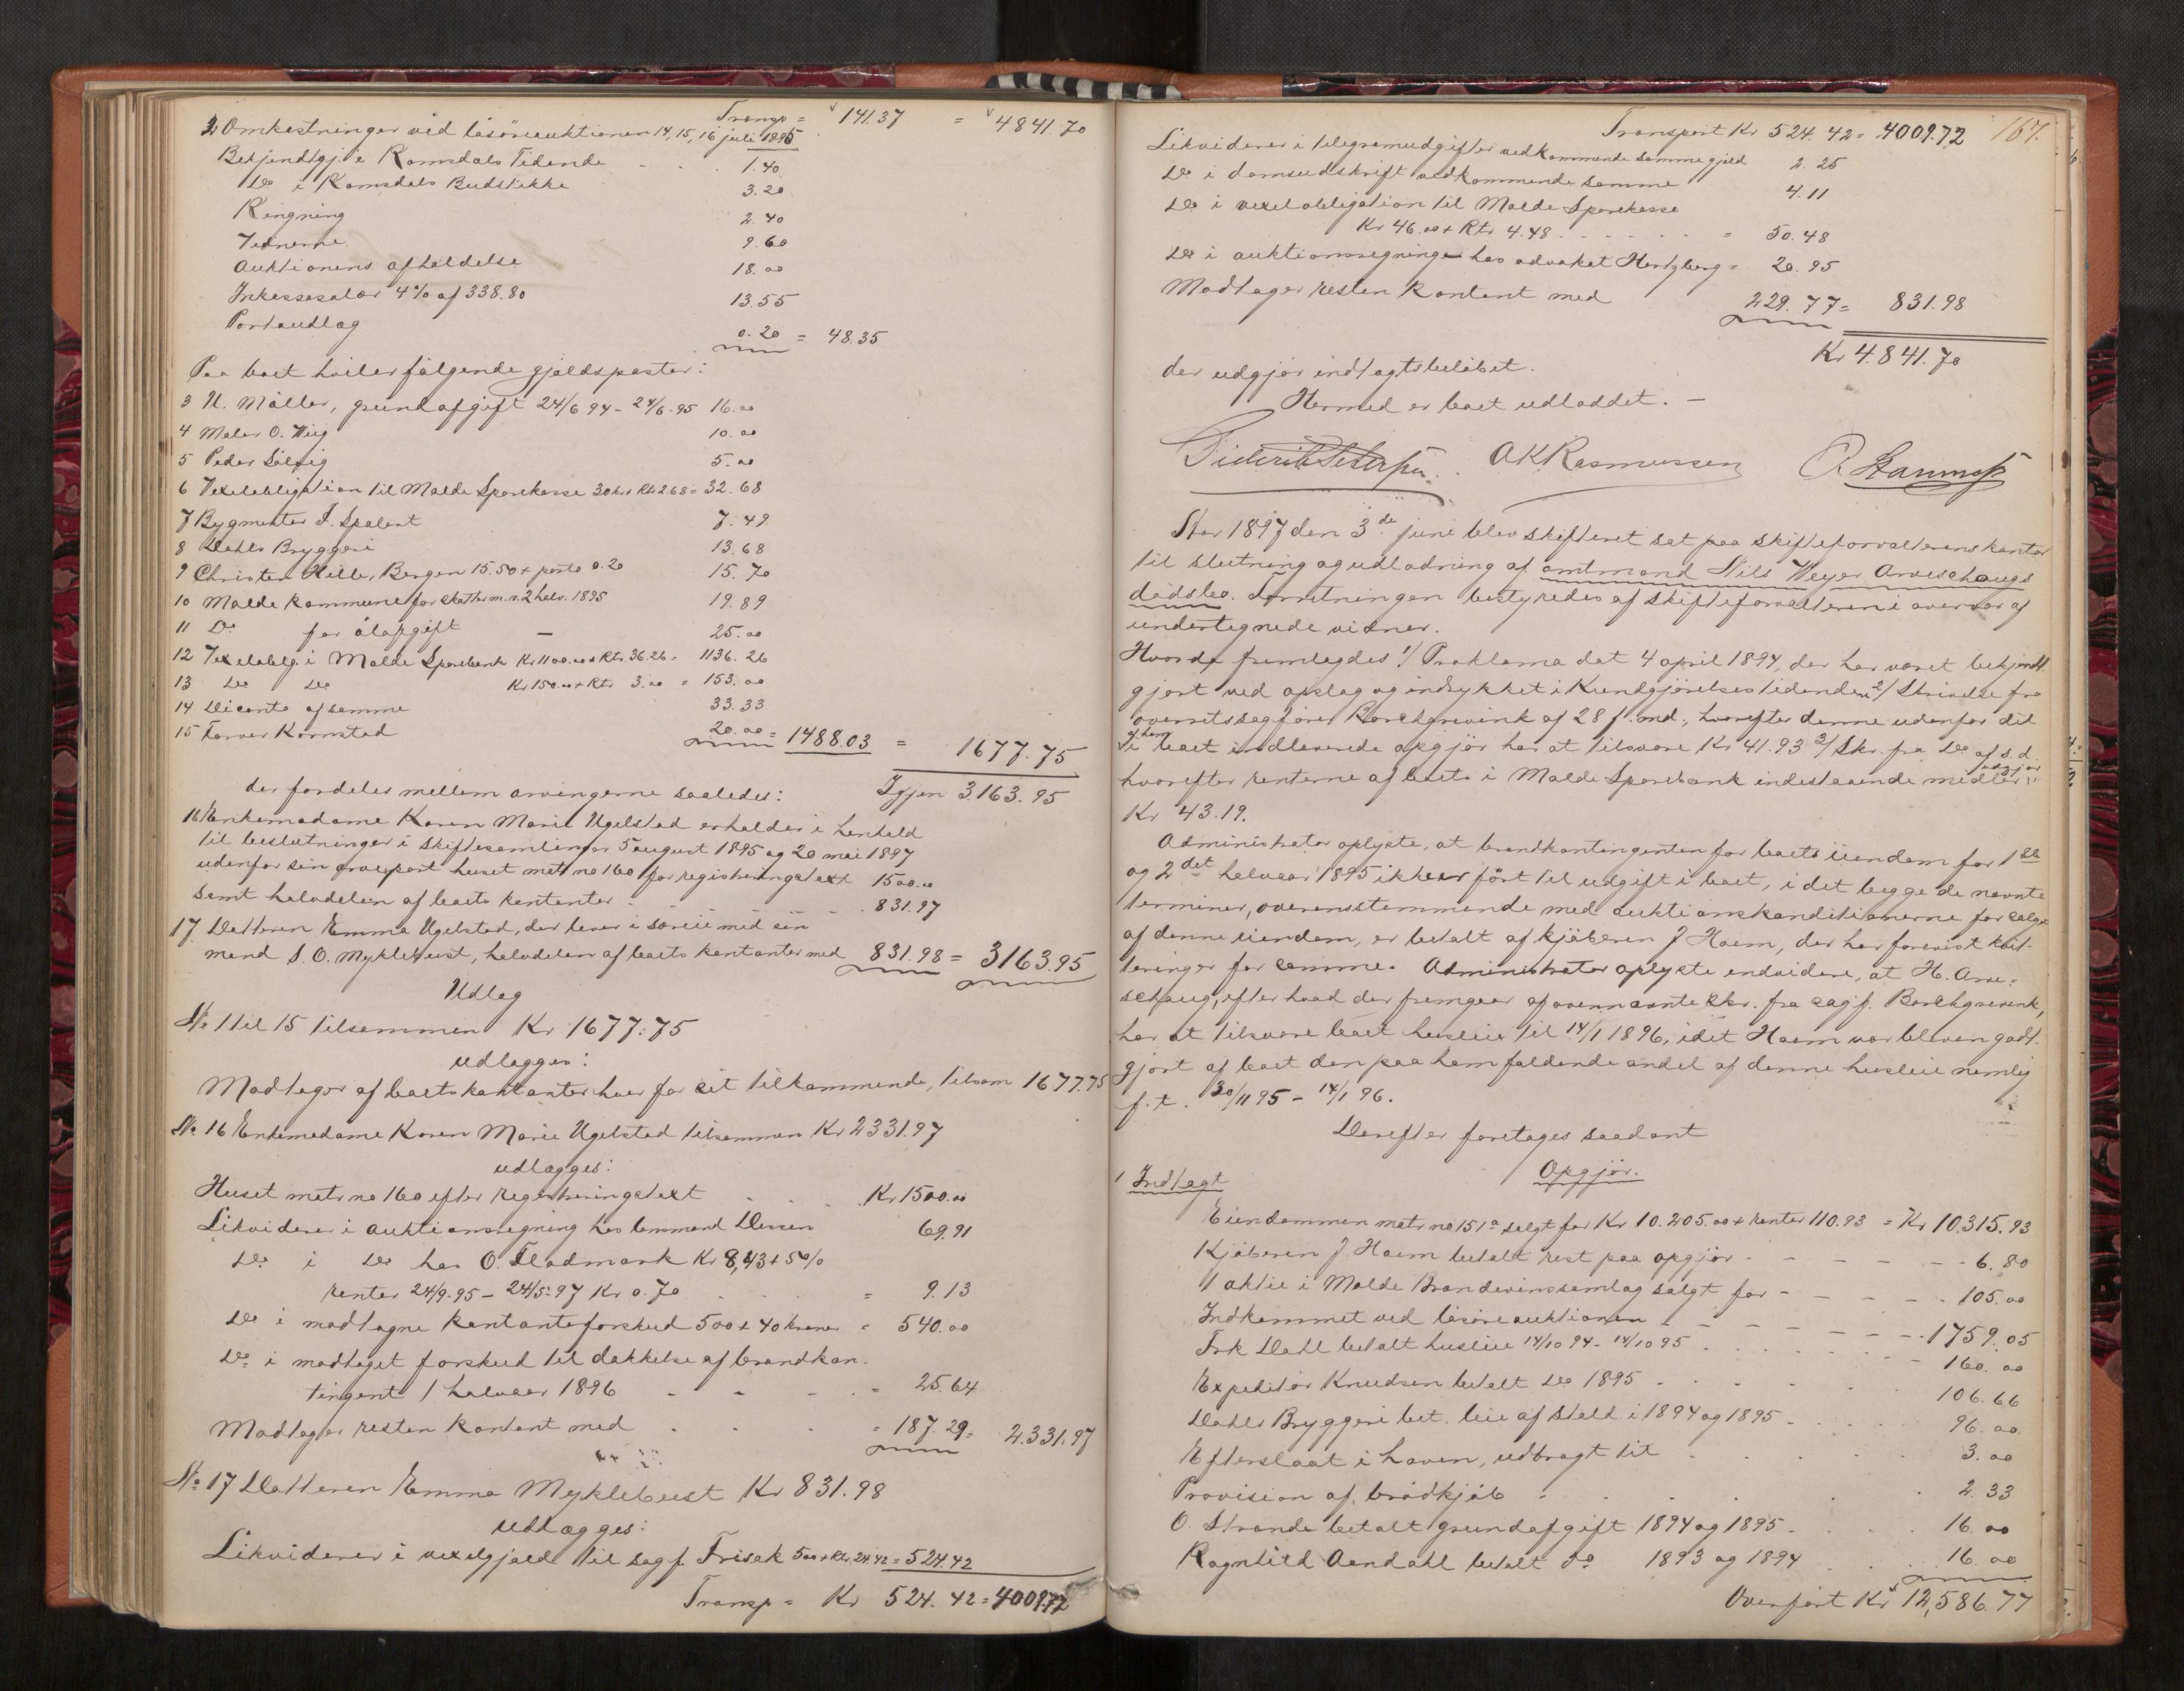 Transp = 141.37 = 4841.70
2 Omkostninger ved løsøreauktionen 14, 15, 16 juli 1895
Bekjendtgj. i Romsdals Tidende - - 1.40
Do i Romsdals Budstikke 3.20
Ringning 2.40
Vidnerne 9.60
Auktionens afholdelse 18.00
Inkassosalær 4% af 338.80 13.55
Portoudlæg 0.20 = 48.35
Paa boet hviler følgende gjældsposter:
3 N. Møller, grundafgift 24/6 94 - 24/6.95 16.00
4 Maler O. Wiig 10.00
5 Peder Solvig 5.00
6 Vexelobligation til Molde Sparekasse 30 kr + Rtr 2.68 = 32.68
7 Bygmester I. Spalent 7.49
8 Dahls Bryggeri 13.68
9 Christen Hille, Bergen 15.50 + porto 0.20 15.70
10 Molde kommune for skatter m. v. 2 halv. 1895 19.89
11 Do for ølafgift — 25.00
12 Vexeloblg i Molde Sparebank Kr 1100.00 + Rtr. 36.26 = 1136.26
13 Do Do Kr 150.00 + Rtr 3.00 = 153.00
14 Diconto af samme 33.33
15 Farver Kornstad 20.00 = 1488.03 = 1677.75
Igjen 3163.95
der fordeles mellem arvingerne saaledes:
16 Enkemadame Karen Marie Ugelstad erholder i henhold
til beslutninger i skiftesamlinger 5 august 1895 og 20 mai 1897
udenfor sin arvepart huset matr no 160 for registreringstaxt 1500.00
samt halvdelen af boets kontanter - - - 831.97
17 Datteren Emma Ugelstad, der lever i særeie med sin
mand S. O. Myklebust, halvdelen af boets kontanter med 831.98 = 3163.95
Udlæg
No 1 til 15 tilsammen Kr 1677.75
udlægges:
Modtager af boets kontanter hver for sit tilkommende, tilsam 1677.75
No 16 Enkemadame Karen Marie Ugelstad tilsammen Kr 2331.97
udlægges:
Huset matr no 160 efter registreringstaxt - - - Kr 1500.00
Likviderer i auktionsregning hos lensmand Dessen 69.91
Do i Do hos O. Fladmark Kr 8,43 + 5%
renter 24/9.95 - 24/5.97 Kr 0.70 = 9.13
Do i modtagne kontanteforskud 500 + 40 kroner = 540.00
Do i modtaget forskud til dækkelse af brandkon-
tingent 1 halvaar 1896 - - - = 25.64
Modtager resten kontant med - - - = 187.29 = 2.331.97
No 17 Datteren Emma Myklebust Kr 831.98
udlægges:
Likviderer i vexelgjæld til sagf. Frisak 500 + Rtr 24.42 = 524.42
Transp = Kr 524.42 = 4009.72
Transport Kr 524.42 = 4009.72 167.
Likviderer i telegramudgifter vedkommende samme gjæld 2.25
Do i domsudskrift vedkommende samme 4.11
Do i vexelobligation til Molde Sparekasse
Kr 46.00 + Rtr 4.48 - - - = 50.48
Do i auktionsregning hos advokat Hertzberg = 20.95
Modtager resten kontant med 229.77 = 831.98
Kr 4841.70
der udgjør indtægtsbeløbet.
Hermed er boet udloddet. -
Diderik Petersen. O K Rasmussen
Aar 1897 den 3de juni blev skifteret sat paa skifteforvalterens kontor
til slutning og udlodning af amtmand Nils Weyer Arveschougs
dødsbo. Forretningen bestyredes af skifteforvalteren i overvær af
undertegnede vidner.
Hvorda fremlagdes 1/ Proklama dat 4 april 1894, der har været bekjendt-
gjort ved opslag og indrykket i Kundgjørelsestidenden 2/ Skrivelse fra
overretssagfører Borchgrevink af 28 f. md., hvorefter denne udenfor det
af ham i boet indleverede opgjør har at tilsvare Kr 41.93 3/ Skr. fra Do af s. d.
hvorefter renterne af boets i Molde Sparebank indestaaende midler udgjør
Kr 43.19.
Administrator oplyste, at brandkontingenten for boets eiendom for 1ste
og 2det halvaar 1895 ikke er ført til udgift i boet, idet begge de nævnte
terminer, overensstemmende med auktionskonditionerne for salge
af denne eiendom, er betalt af kjøberen J Haem, der har forevist kvit-
teringer for samme. Administrator oplyste endvidere, at H. Arve-
schoug, efter hvad der fremgaar af ovennævnte Skr. fra sagf. Borchgrevink,
har at tilsvare boet husleie til 14/1 1896, idet Haem var bleven godt-
gjort af boet den paa ham faldende andel af denne husleie nemlig
f. t. 30/11 95 - 14/1 96.
Derefter foretages saadant
Opgjør.
1 Indtægt
Eiendommen matr no 151a solgt for Kr 10.205.00 + renter 110.93 = Kr 10.315.93
Kjøberen J. Haem betalt rest paa opgjør - - - - 6.80
1 aktie i Molde Brændevinssamlag solgt for - - - - 105.00
Indkommet ved løsøreauktionen - - - - 1759.05
Frk Dahl betalt husleie 14/10 94 - 14/10 95 - - - 160.00
Expeditør Knudsen betalt Do 1895 - - - 106.66
Dahls Bryggeri bet. leie af stald i 1894 og 1895 - - - 96.00
Efterslaat i haven, udbragt til - - - 3.00
Provision af brødkjøb - - - 2.33
O. Strande betalt grundafgift 1894 og 1895 - - - 16.00
Ragnhild Aandahl betalt do 1893 og 1894 - - 16.00
Overført Kr 12,586.77